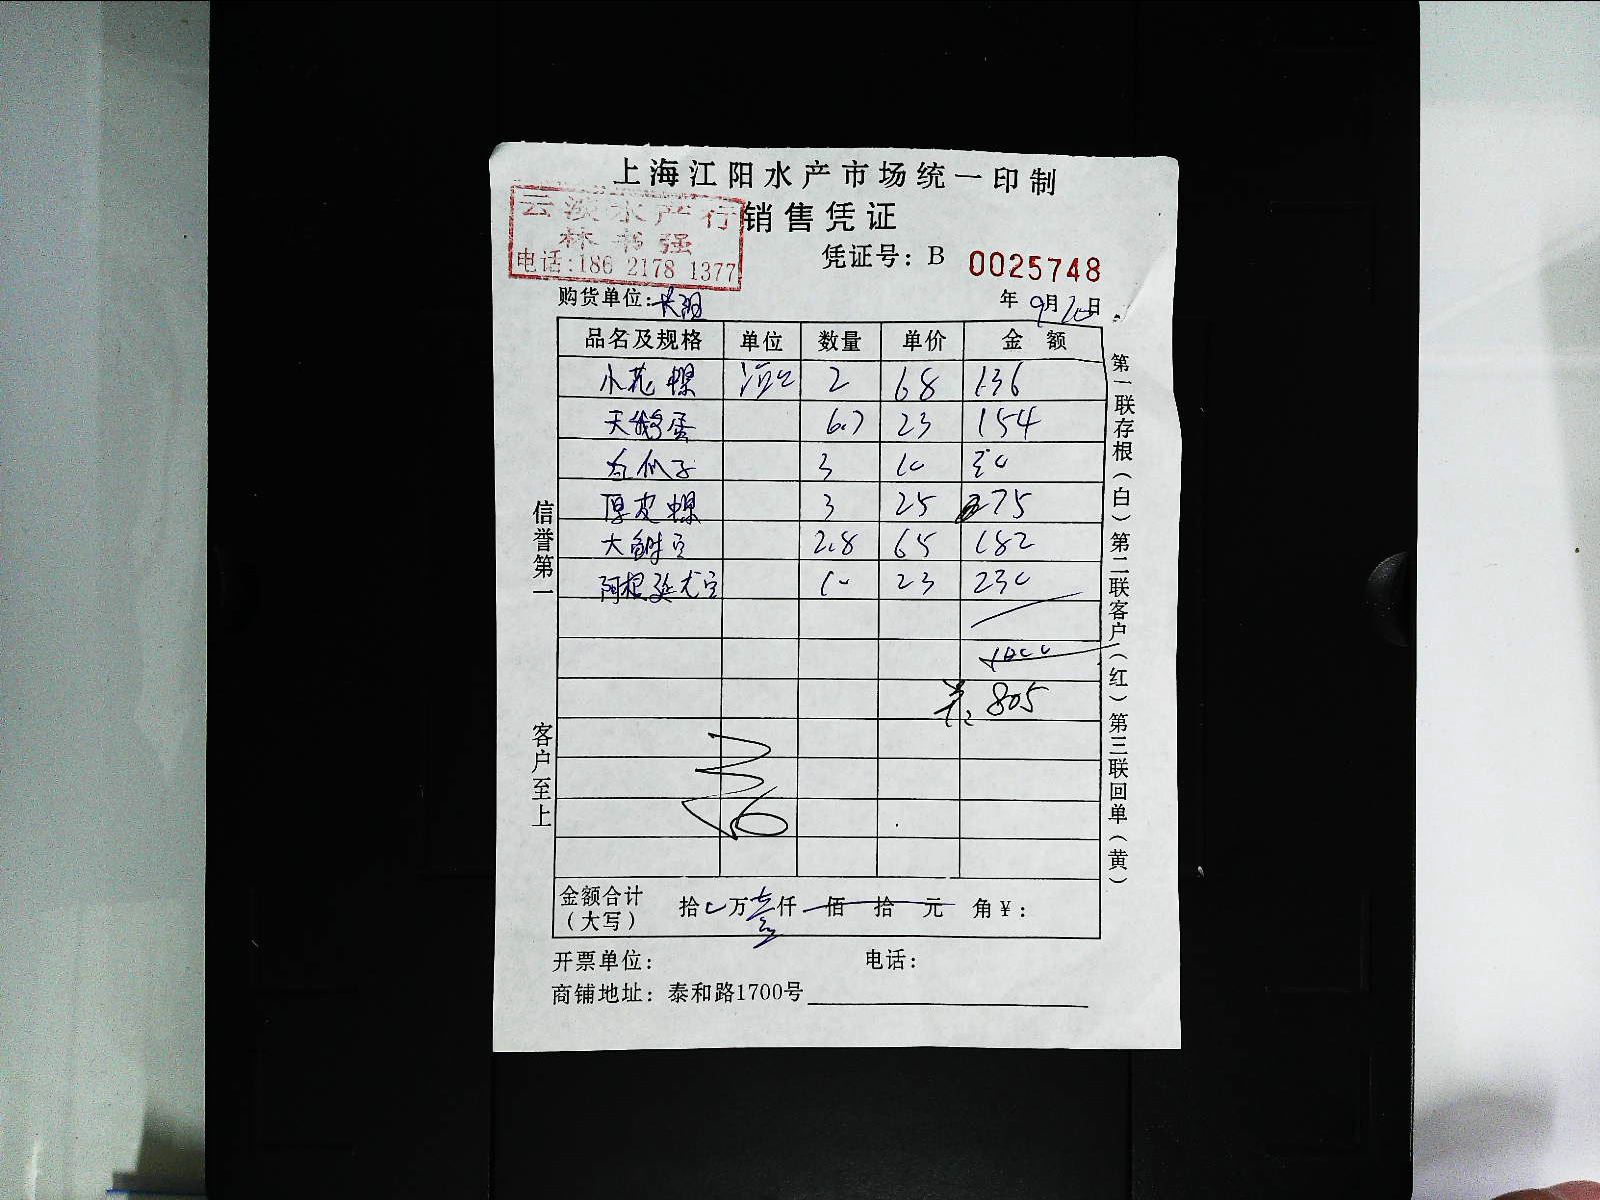 上海江阳水产市场统一印制
云波水产行
林书强
电话:186 2178 1377
销售凭证
凭证号: B 0025748
购货单位:
年 9月20日
品名及规格 单位 数量 单价 金额
小花螺 2 68 136
天鹅蛋 6.7 23 154
瓜子 3 10 30
厚皮螺 3 25 275
大 2.8 65 182
阿根廷尤 10 23 230
805
金额合计
(大写) 拾 万 壹仟 佰 拾 元 角¥:
开票单位: 电话:
商铺地址: 泰和路1700号
信誉第一 客户至上
第一联存根(白)第二联客户(红)第三联回单(黄)